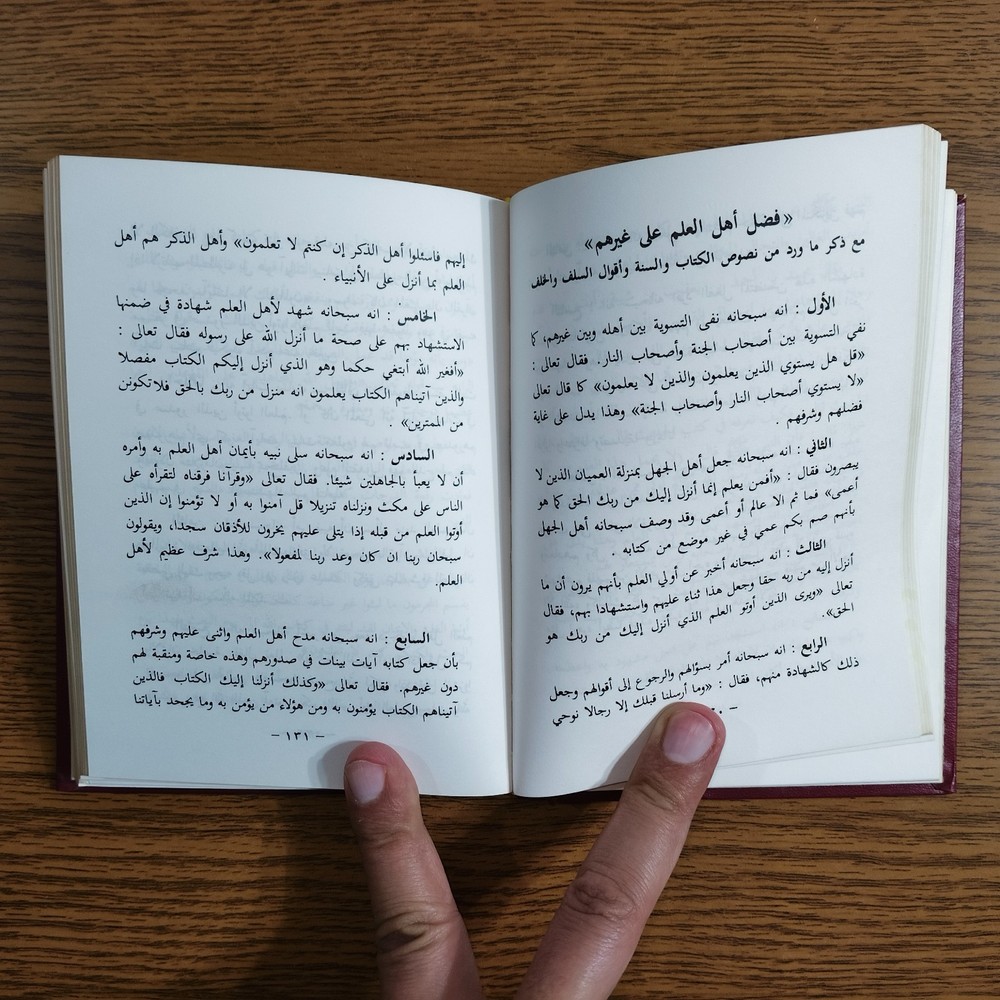 «فضل أهل العلم على غيرهم»
مع ذكر ما ورد من نصوص الكتاب والسنة وأقوال السلف والخلف
الأول : انه سبحانه نفى التسوية بين أهله وبين غيرهم، كما
نفي التسوية بين أصحاب الجنة وأصحاب النار. فقال تعالى :
«قل هل يستوي الذين يعلمون والذين لا يعلمون» كما قال تعالى
«لا يستوي أصحاب النار وأصحاب الجنة» وهذا يدل على غاية
فضلهم وشرفهم .
الثاني : انه سبحانه جعل أهل الجهل بمنزلة العميان الذين لا
يبصرون فقال : «أفمن يعلم إنما أنزل إليك من ربك الحق كما هو
أعمى» فما ثم الا عالم أو أعمى وقد وصف سبحانه أهل الجهل
بأنهم صم بكم عمي في غير موضع من كتابه .
الثالث : انه سبحانه أخبر عن أولي العلم بأنهم يرون أن ما
أنزل إليه من ربه حقا وجعل هذا ثناء عليهم واستشهادا بهم، فقال
تعالى «ويرى الذين أوتو العلم الذي أنزل إليك من ربك هو
الحق».
الرابع : انه سبحانه أمر بسؤالهم والرجوع إلى أقوالهم وجعل
ذلك كالشهادة منهم، فقال : «وما أرسلنا قبلك إلا رجالا نوحي
إليهم فاسئلوا أهل الذكر إن كنتم لا تعلمون» وأهل الذكر هم أهل
العلم بما أنزل على الأنبياء .
الخامس : انه سبحانه شهد لأهل العلم شهادة في ضمنها
الاستشهاد بهم على صحة ما أنزل الله على رسوله فقال تعالى :
«أفغير الله أبتغي حكما وهو الذي أنزل إليكم الكتاب مفصلا
والذين آتيناهم الكتاب يعلمون انه منزل من ربك بالحق فلا تكونن
من الممترين» .
السادس : انه سبحانه سلى نبيه بأيمان أهل العلم به وأمره
أن لا يعبأ بالجاهلين شيئا. فقال تعالى «وقرآنا فرقناه لتقرأه على
الناس على مكث ونزلناه تنزيلا قل آمنوا به أو لا تؤمنوا إن الذين
أوتوا العلم من قبله إذا يتلى عليهم يخرون للأذقان سجدا، ويقولون
سبحان ربنا ان كان وعد ربنا لمفعولا». وهذا شرف عظيم لأهل
العلم.
السابع : انه سبحانه مدح أهل العلم واثنى عليهم وشرفهم
بأن جعل كتابه آيات بينات في صدورهم وهذه خاصة ومنقبة لهم
دون غيرهم. فقال تعالى «وكذلك أنزلنا إليك الكتاب فالذين
آتيناهم الكتاب يؤمنون به ومن هؤلاء من يؤمن به وما يجحد بآياتنا
– ١٣١ –